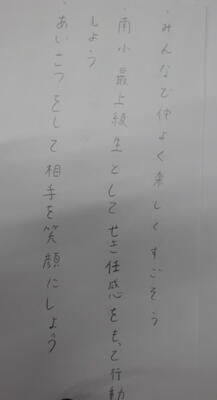 ・みんなで仲よく楽しくすごそう
・南小最上級生としてせき任感をもって行動
しよう
・あいさつをして相手を笑顔にしよう